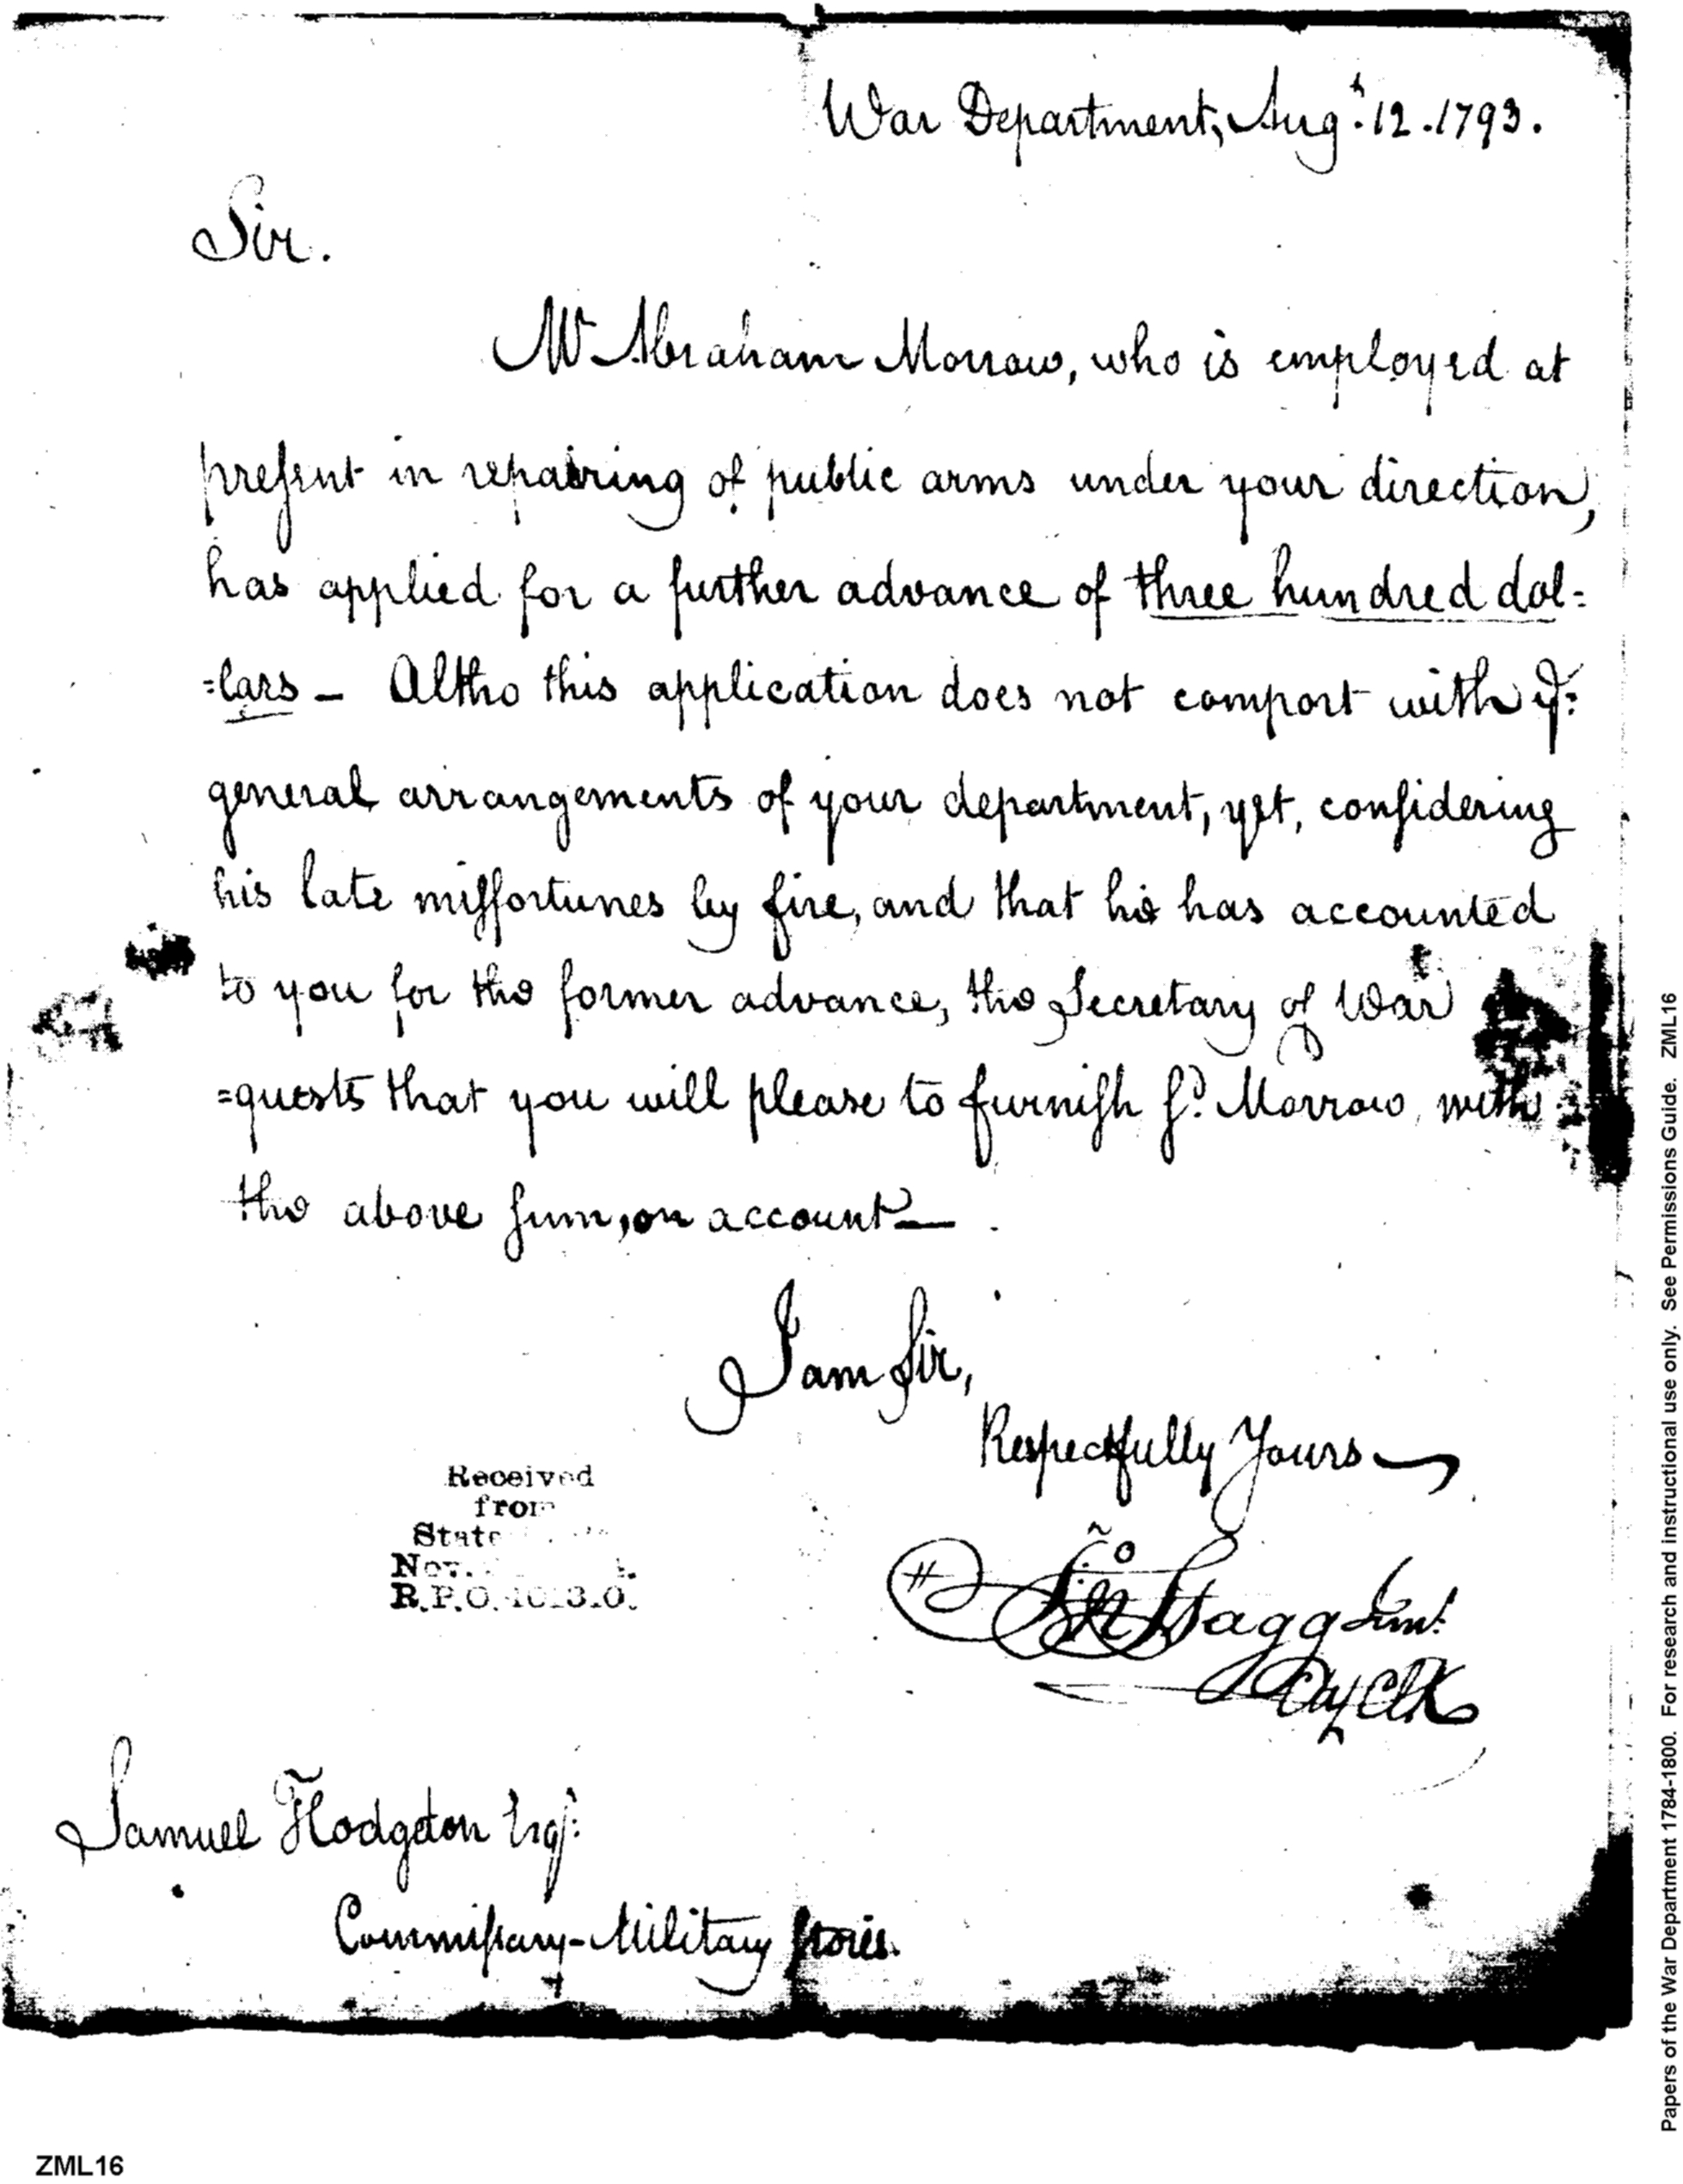 War Department, Augt. 12. 1793.
Sir.
Mr Abraham Morrow, who is employed at
present in repairing of public arms under your direction,
has applied for a further advance of three hundred dol=
=lars – Altho this application does not comport with ye:
general arrangements of your department, yet, considering
his late missfortunes by fire, and that he has accounted
to you for the former advance, the Secretary of War
=quests that you will please to furnish sd. Morrow, with
the above sum, on account –
I am Sir,
Respectfully Yours
Jno Stagg Junr.
Chf Clk
Received
from
State
Nov.
R.P.O.
Samuel Hodgdon Esqr:
Commissary-Military Stores.
Papers of the War Department 1784-1800. For research and instructional use only. See Permissions Guide. ZML16
ZML16